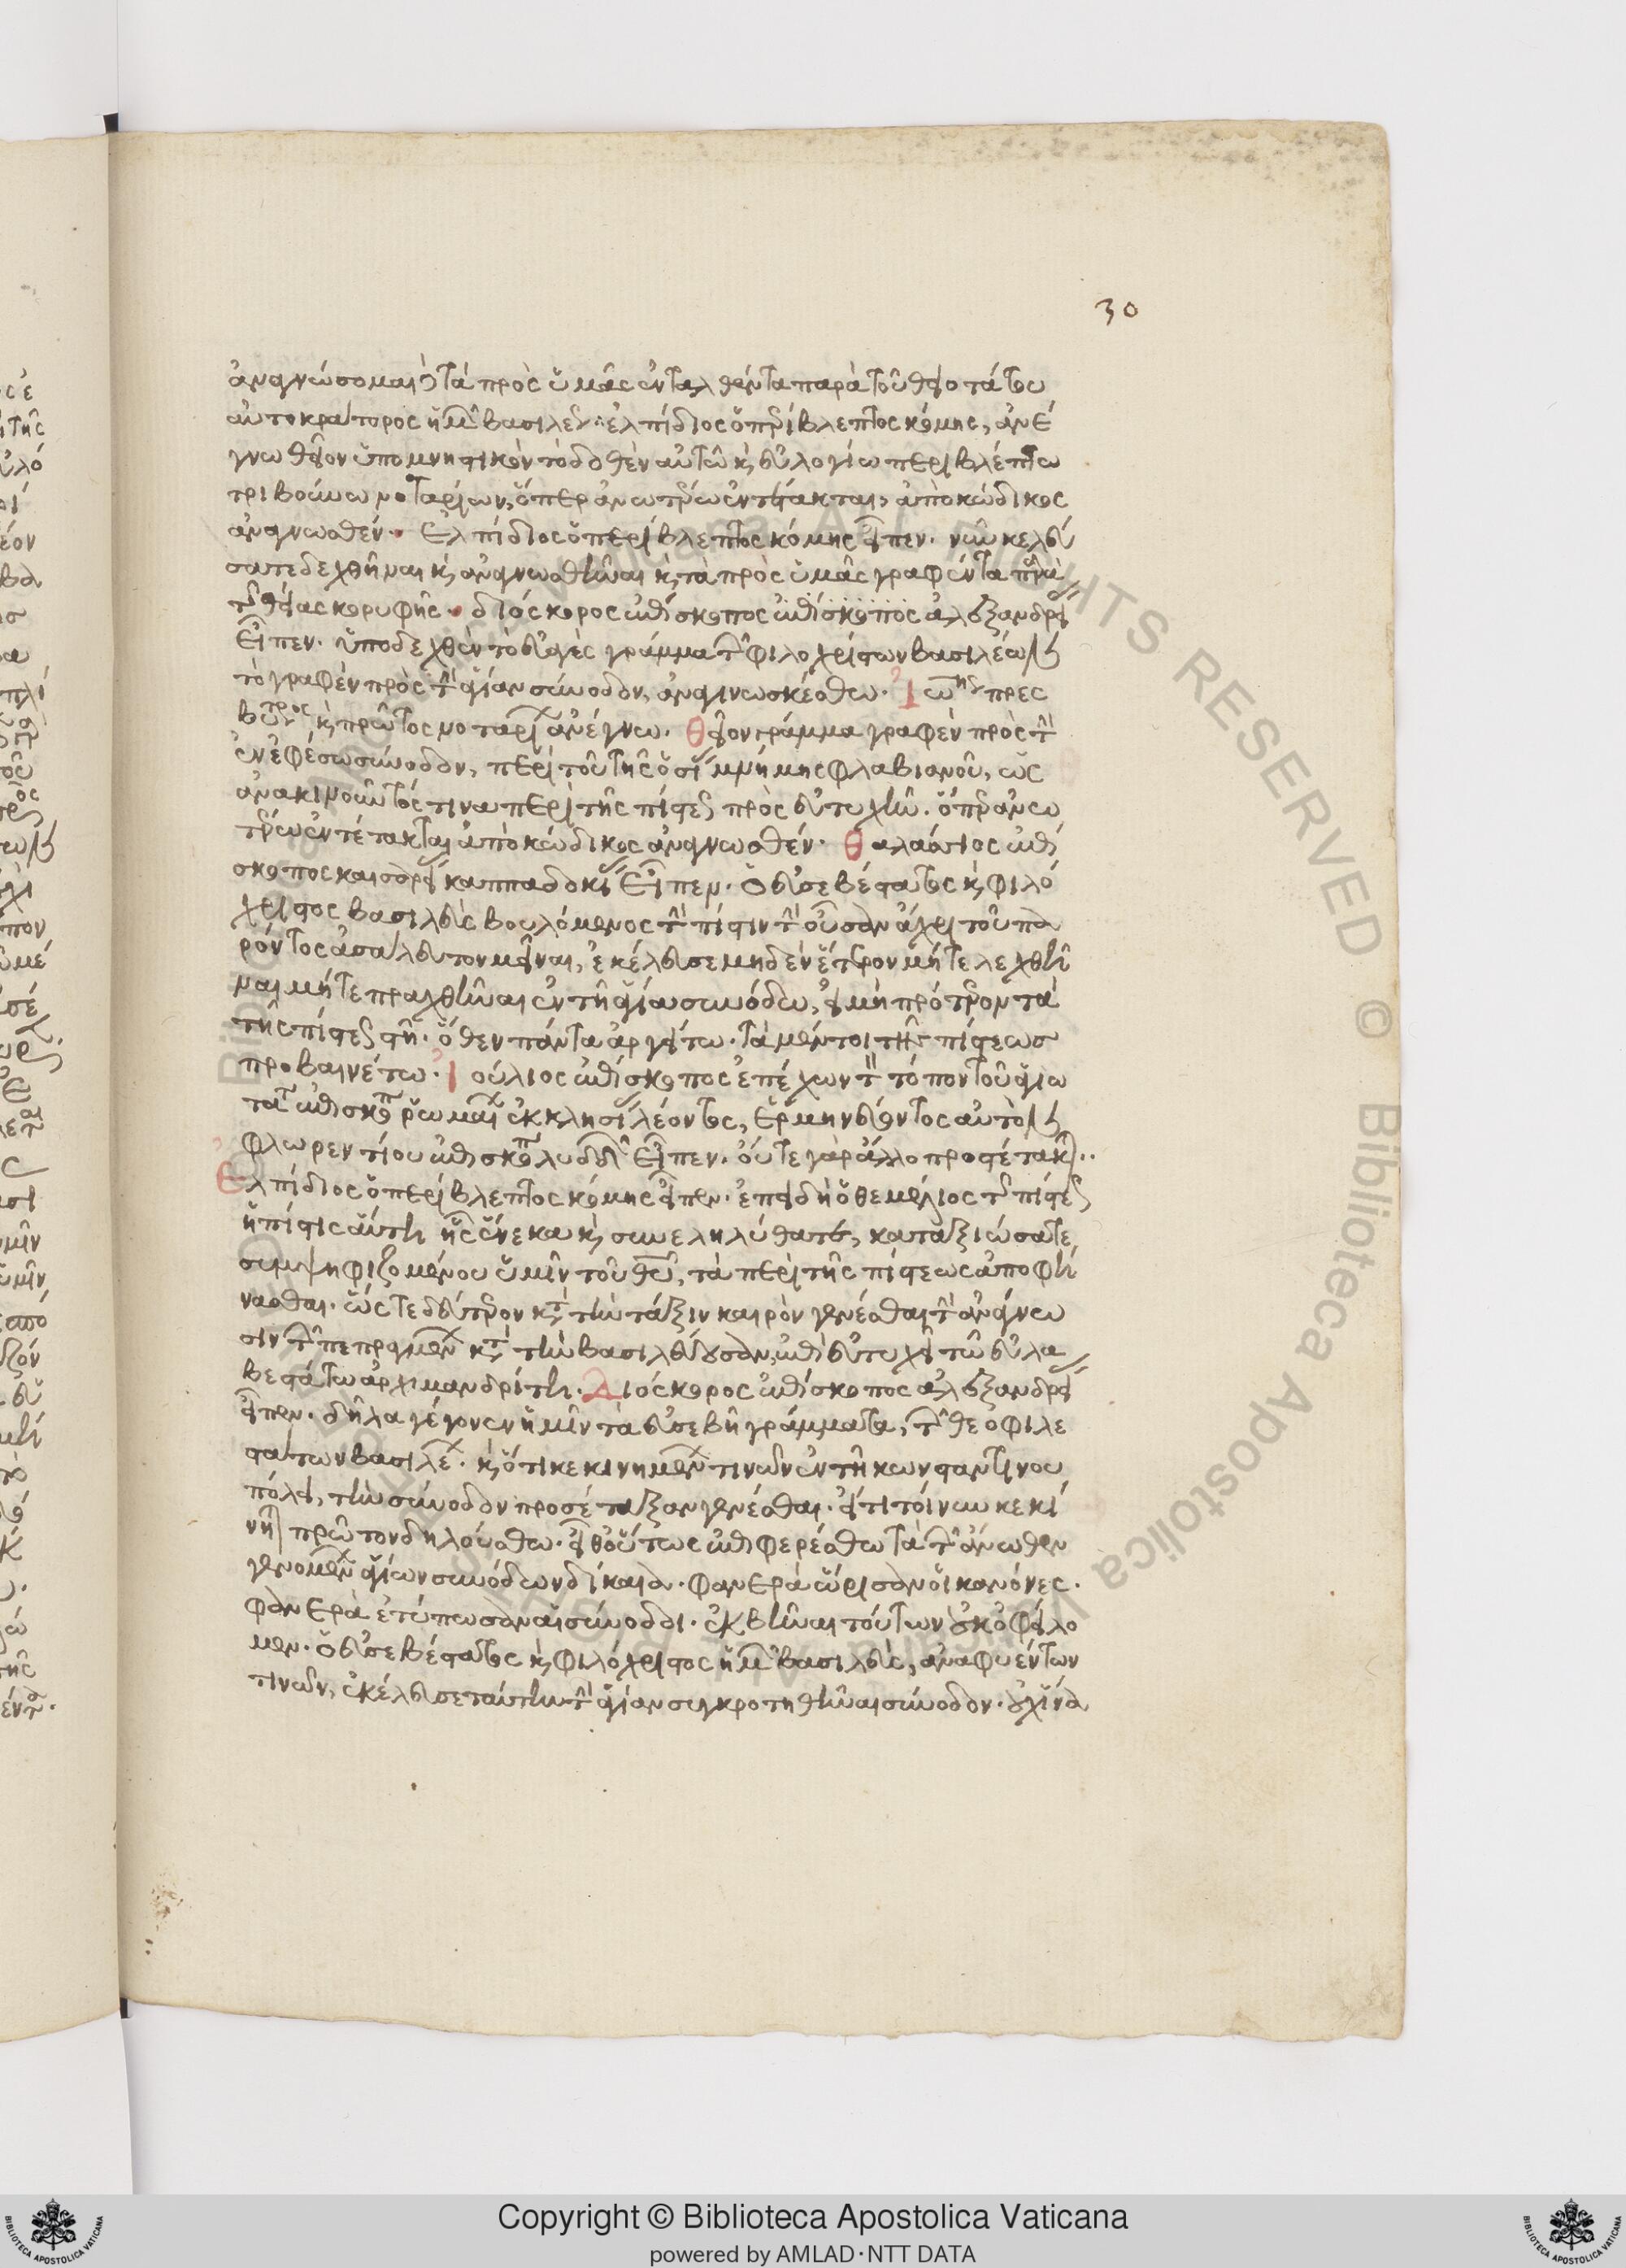 30
ἀναγνώσομαι τὰ πρὸς ὑμᾶς ἐνταλθέντα παρὰ τοῦ θειοτάτου
αὐτοκράτορος ἡμ βασιλέως· ἐλπίδιος ὁ περίβλεπτος κόμης, ἀνέ
γνω θεῖον ὑπομνηστικὸν τὸ δοθὲν αὐτῶ κ εὐλογίω περιβλέπτω
τριβούνω νοταρίων, ὅπερ ἀνωτέρω ἐντέτακται, ἀπὸ κώδικος
ἀναγνωσθέν· Ἐλπίδιος ὁ περίβλεπτος κόμης εἶπεν· νῦν κελεύ
σατε δεχθῆναι κ ἀναγνωσθῆναι κ τὰ πρὸς ὑμᾶς γραφέντα παρὰ
τῆς θείας κορυφῆς· διόσκορος ἐπίσκοπος ἐπίσκοπος ἀλεξανδρεί
εἶπεν· ὑποδεχθὲν τὸ εὐαγὲς γράμμα τῶν φιλοχρίστων βασιλέων
τὸ γραφὲν πρὸς τὴν ἁγίαν σύνοδον, ἀναγινωσκέσθω· Ἰω πρεσ
βύτερος κ πρῶτος νοταρί ἀνέγνω· Θεῖον γράμμα γραφὲν πρὸς τὴν
ἐν ἐφέσω σύνοδον, περὶ τοῦ τῆς ὁσί μνήμης φλαβιανοῦ, ὡς
ἀνακινοῦντός τινα περὶ τῆς πίστεως πρὸς εὐτυχῆ· ὅπερ ἀνω
τέρω ἐντέτακται ἀπὸ κώδικος ἀναγνωσθέν· Θαλάσσιος ἐπί
σκοπος καισαρεί καππαδοκί εἶπεν· ὁ εὐσεβέστατος κ φιλό
χριστος βασιλεὺς βουλόμενος τὴν πίστιν τὴν οὖσαν ἄχρι τοῦ πα
ρόντος ἀσάλευτον μεῖναι, ἐκέλευσε μηδὲν ἕτερον μήτε λεχθῆ
ναι μήτε πραχθῆναι ἐν τῆ ἁγία συνόδω, εἰ μὴ πρότερον τὰ
τῆς πίστεως στῆ· ὅθεν πάντα ἀργείτω· τὰ μέντοι τῆς πίστεωσ
προβαινέτω· Ἰούλιος ἐπίσκοπος ἐπέχων τὸν τόπον τοῦ ἁγιω
τά ἐπισκόπ ῥωμαί ἐκκλησί λέοντος, ἑρμηνεύοντος αὐτὸν
φλωρεντίου ἐπισκόπ λυδ εἶπεν· οὔτε γὰρ ἄλλο προστέτακται··
Ἐλπίδιος ὁ περίβλεπτος κόμης εἶπεν· ἐπειδὴ ὁ θεμέλιος τῆς πίστεως
ἡ πίστις αὕτη ἧς ἕνεκα κ συνεληλύθατε, καταξιώσατε
συμψηφιζομένου ὑμῖν τοῦ θῦ, τὰ περὶ τῆς πίστεως ἀποφή
νασθαι· ὥστε δεύτερον κτ τὴν τάξιν καιρὸν γενέσθαι τὴν ἀνάγνω
σιν τῶν πεπραγμέν κτ τὴν βασιλεύουσαν, ἐπὶ εὐτυχεῖ τῶ εὐλα
βεστάτω ἀρχιμανδρίτη· Διόσκορος ἐπίσκοπος ἀλεξανδρεί
εἶπεν· δῆλα γέγονεν ἡμῖν τὰ εὐσεβῆ γράμματα, τῶν θεοφιλε
στάτων βασιλέ· κ ὅτι κεκινημέν τινῶν ἐν τῆ κωνσταντίνου
πόλει, τὴν σύνοδον προσέταξαν γενέσθαι· εἴ τι τοίνυν κεκί
νηται πρῶτον δηλούσθω· εἶθ' οὕτως ἐπιφερέσθω τὰ τῶν ἄνωθεν
γενομέν ἁγίων συνόδων δίκαια· φανερὰ ὥρισαν οἱ κανόνες·
φανερὰ ἐτύπωσαν αἱ σύνοδοι· ἐκβῆναι τούτων οὐκ ὀφείλο
μεν· ὁ εὐσεβέστατος κ φιλόχριστος ἡμ βασιλεὺς, ἀναφυέντων
τινῶν, ἐκέλευσε ταύτην τὴν ἁγίαν συγκροτηθῆναι σύνοδον· οὐχ ἵνα
Copyright © Biblioteca Apostolica Vaticana
powered by AMLAD·NTT DATA